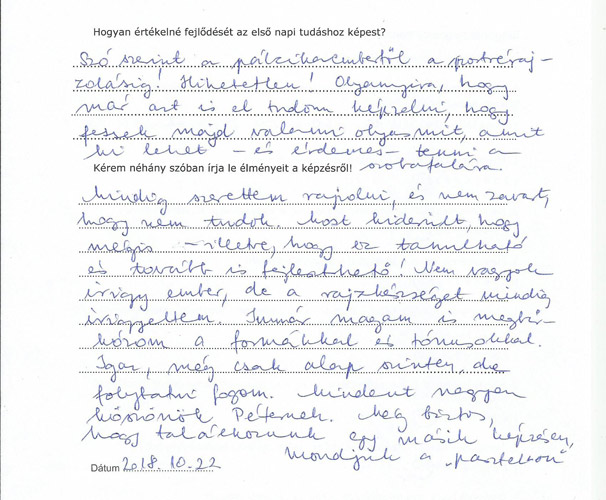 Hogyan értékelné fejlődését az első napi tudáshoz képest?
Szó szerint a pálcikaembertől a portréraj-
zolásig! Hihetetlen! Olyannyira, hogy
már azt is el tudom képzelni, hogy
fessek majd valami olyasmit, amit
ki lehet - és érdemes - tenni a
Kérem néhány szóban írja le élményeit a képzésről! szobafalára.
Mindig szerettem rajzolni, és nem zavart,
hogy nem tudok. Most kiderült, hogy
mégis - illetve, hogy ez tanulható
és tovább is fejleszthető! Nem vagyok
irigy ember, de a rajzkészséget mindig
irigyeltem. Immár magam is megbir-
kózom a formákkal és tónusokkal.
Igaz, még csak alap szinten, de
folytatni fogom. Mindent nagyon
köszönök Péternek. Meg biztos,
hogy találkozunk egy másik képzésen,
mondjuk a "pasztellon"
Dátum 2018. 10. 22